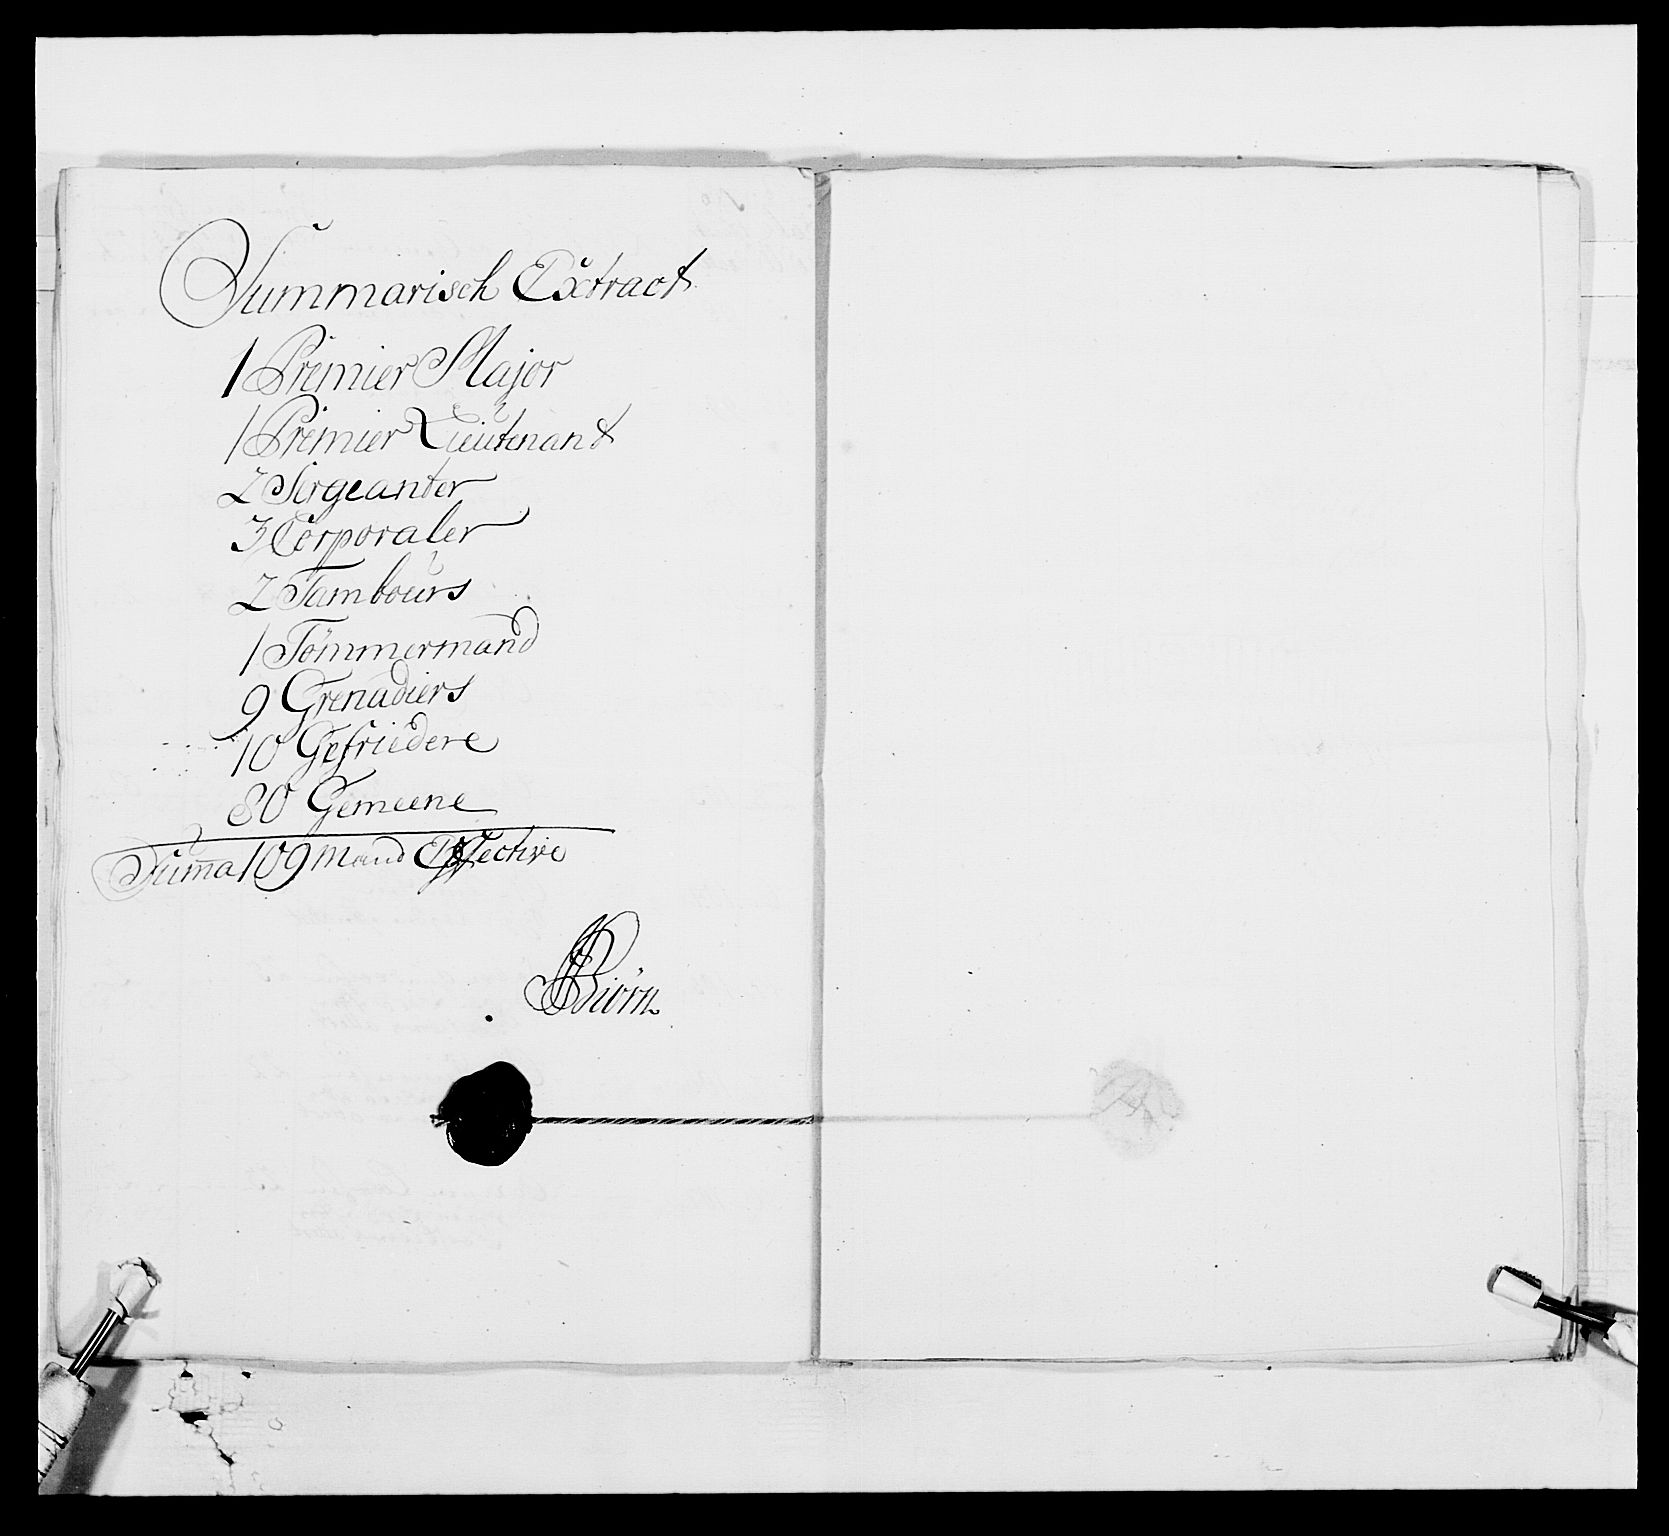 Summarisch Extract
1 Premier Major
1 Premier Lieutenant
2 Sergeanter
3 Corporaler
2 Tambours
1 Tömmermand
9 Grenadiers
10 Gefriedere
80 Gemeene
Suma 109 Mand Effective
Biörn